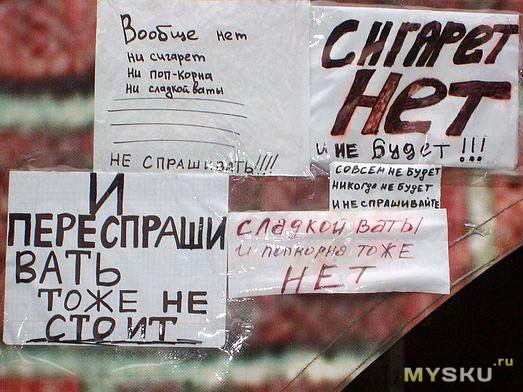 Вообще нет
ни сигарет
ни поп-корна
ни сладкой ваты
НЕ СПРАШИВАТЬ!!!!
СИГАРЕТ
НЕТ
и НЕ будет !!!
СОВСЕМ НЕ БУДЕТ
НИКОГДА НЕ БУДЕТ
И НЕ СПРАШИВАЙТЕ
И
ПЕРЕСПРАШИ
ВАТЬ
ТОЖЕ НЕ
СТОИТ
СЛАДКОЙ ВАТЫ
и попкорна тоже
НЕТ
MYSKU.ru